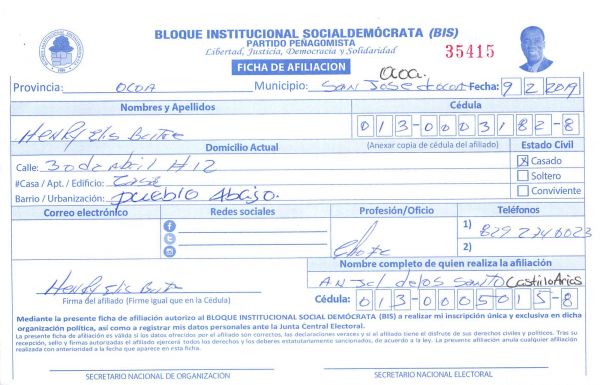 BLOQUE INSTITUCIONAL SOCIALDEMÓCRATA (BIS)
PARTIDO PEÑAGOMISTA
Libertad, Justicia, Democracia y Solidaridad
35415
FICHA DE AFILIACION
Ocoa.
Provincia: OCOA Municipio: SAN JOSE de OCOA Fecha: 9 2 2019
Nombres y Apellidos Cédula
HENRY Elis 013-0003182-8
Domicilio Actual (Anexar copia de cédula del afiliado) Estado Civil
Calle: 30 de Abril #12 X Casado
#Casa / Apt. / Edificio: Casa Soltero
Barrio / Urbanización: pueblo Abajo. Conviviente
Correo electrónico Redes sociales Profesión/Oficio Teléfonos
1) 829 2740023
2)
Nombre completo de quien realiza la afiliación
HENRY Elis ANJel delos Santo Castillo Arias
Firma del afiliado (Firme igual que en la Cédula) Cédula: 013-0005015-8
Mediante la presente ficha de afiliación autorizo al BLOQUE INSTITUCIONAL SOCIAL DEMÓCRATA (BIS) a realizar mi inscripción única y exclusiva en dicha
organización política, así como a registrar mis datos personales ante la Junta Central Electoral.
La presente ficha de afiliación es válida si los datos ofrecidos por el afiliado son correctos, las declaraciones veraces y si el afiliado tiene el disfrute de sus derechos civiles y políticos. Tras su
recepción, sello y firmas autorizadas el afiliado ejercerá todos los derechos y los deberes estatutariamente sancionados, de acuerdo a la ley. La presente afiliación anula cualquier afiliación
realizada con anterioridad a la fecha que aparece en esta ficha.
SECRETARIO NACIONAL DE ORGANIZACIÓN SECRETARIO NACIONAL ELECTORAL